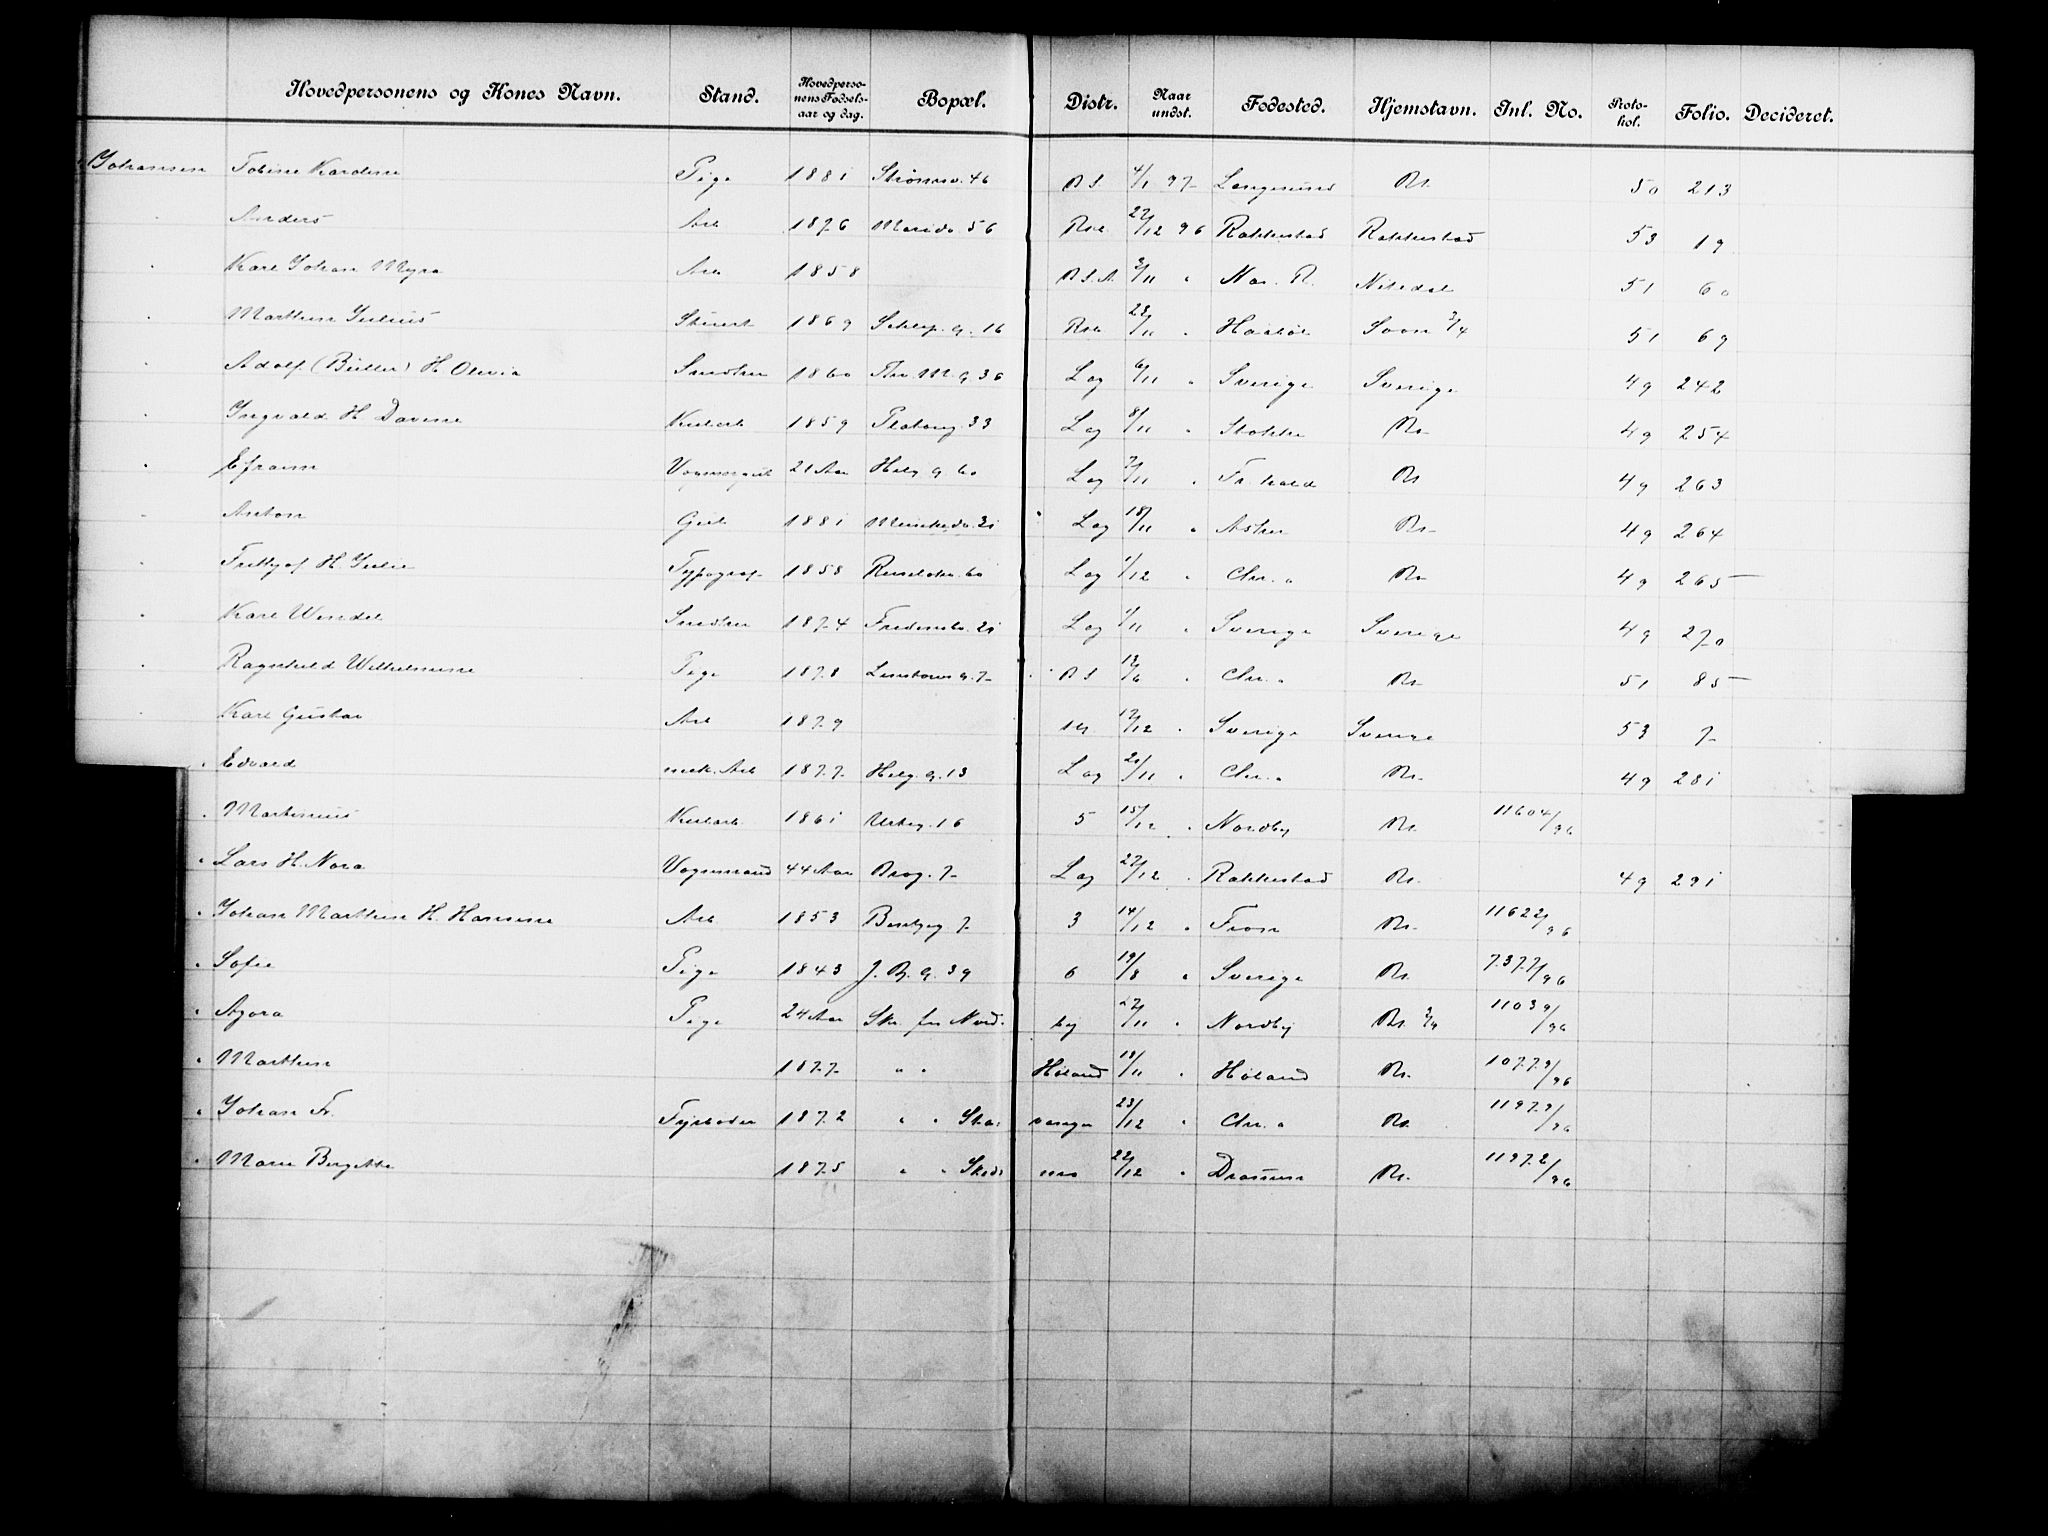 Hovedpersonens og Kones Navn. Stand. Hovedpersonens Fødselsaar og dag. Bopæl. Distr. Naar undst. Fødested. Hjemstavn. Inl. No. Protokol. Folio. Decideret.
Johansen Tobine Kardine Pige 1881 Strømsv. 46 B S. 4/1 97 Langesund Br. 50 213
" Anders Arb 1876 Marido 56 22/12 96 Rakkestad Rakkestad 53 19
" Karl Johan Myra Arb 1858 B.S.A. 3/11 " Nitedal 51 60
" Marthin Julius 1869 Schlep. g. 16 23/11 " Soon 3/4 51 69
" Adolf H. Olivia Snedker 1860 Th. M. g. 36 Lag 6/11 " Sverige Sverige 49 242
" Ingvald H Davine 1859 Platoug. 33 Lag 8/11 " Stokke Br 49 254
" Efraim 21 Aar Helg g 60 Lag 7/11 " Fr. hald Br 49 263
" Anton Gut 1881 Lag 18/11 " Asker Br 49 264
" Frithjof H. Julie Typograf 1858 Lag 1/12 " Chr. a Br 49 265
" Karl Wendel Snedker 1874 Fredensb. 21 Lag 1/11 " Sverige Sverige 49 270
" Ragnhild Wilhelmine Pige 1878 Linstows g. 7 B S " Chr. a Br 51 85
" Karl Gustav Arb 1879 17/12 " Sverige Sverige 53 7
" Edvard mek. Arb 1877 Helg. g. 13 Lag 20/11 " Chr. a Br. 49 281
" Martinius 1861 Urteg. 16 5 15/12 " Nordby Br. 11604/96
" Lars H. Nora Vognmand 44 Aar Brog. 7 Lag 27/12 " Rakkestad Br. 49 291
" Johan Marthin H. Hansine Arb 1853 3 14/12 " Fron Br. 11622/96
" Sofie Pige 1843 J. B. g. 39 6 19/8 " Sverige Br. 7377/96
" Agora Pige 24 Aar Skr. fra Nordby 27/11 " Nordby Br. 11039/96
" Marthin 1877 " " Høland 19/11 " Høland Br. 10779/96
" Johan Fr. Fyrbøder 1872 " " Stavanger 23/12 " Chr. a Br. 11979/96
" Marie Bergitte 1875 " " Skedsmo 22/12 " Drammen Br. 11972/96